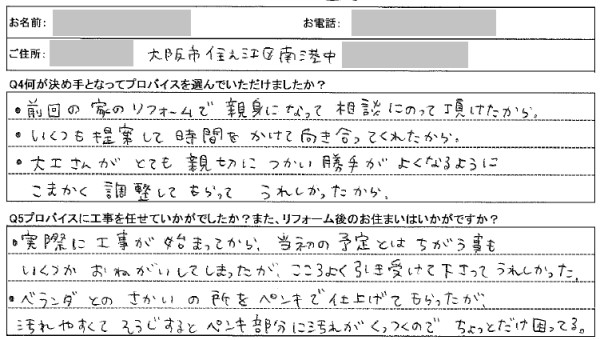 お名前：　お電話：
ご住所：　大阪市住之江区南港中
Q4何が決め手となってプロバイスを選んでいただけましたか？
・前回の家のリフォームで親身になって相談にのって頂けたから。
・いくつも提案して時間をかけて向き合ってくれたから。
・大工さんがとても親切につかい勝手がよくなるように
こまかく調整してもらってうれしかったから。
Q5プロバイスに工事を任せていかがでしたか？また、リフォーム後のお住まいはいかがですか？
・実際に工事が始まってから、当初の予定とはちがう事も
いくつかおねがいしてしまったが、こころよく引き受けて下さってうれしかった。
・ベランダとのさかいの所をペンキで仕上げてもらったが、
汚れやすくてそうじするとペンキ部分に汚れがくっつくのでちょっとだけ困ってる。